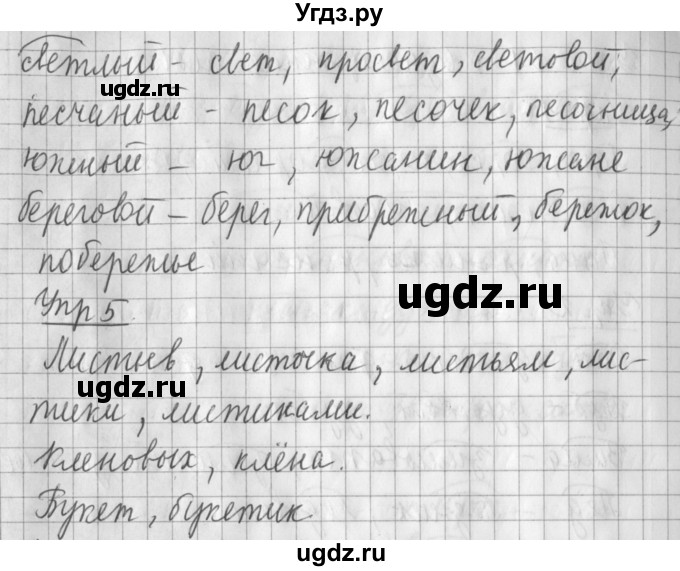 Угдз.ру
светлый - свет, просвет, световой,
песчаный - песок, песочек, песочница,
южный - юг, южанин, южане
береговой - берег, прибрежный, бережок,
побережье
Упр 5.
Листьев, листочка, листьям, лис-
тики, листиками.
Кленовых, клёна.
Букет, букетик.
ugdz.ru
ugdz.ru
ugdz.ru
ugdz.ru
ugdz.ru